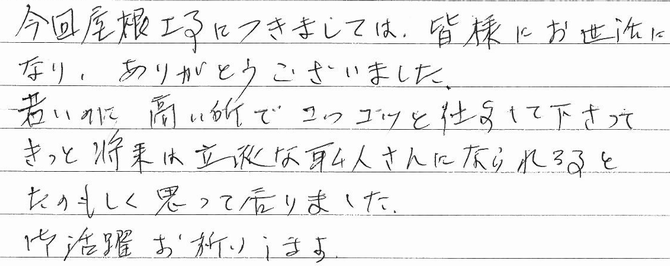 今回屋根工事につきましては、皆様にお世話に
なり、ありがとうございました。
若いのに高い所でコツコツと仕事して下さって
きっと将来は立派な職人さんになられると
たのもしく思って居りました。
御活躍お祈りします